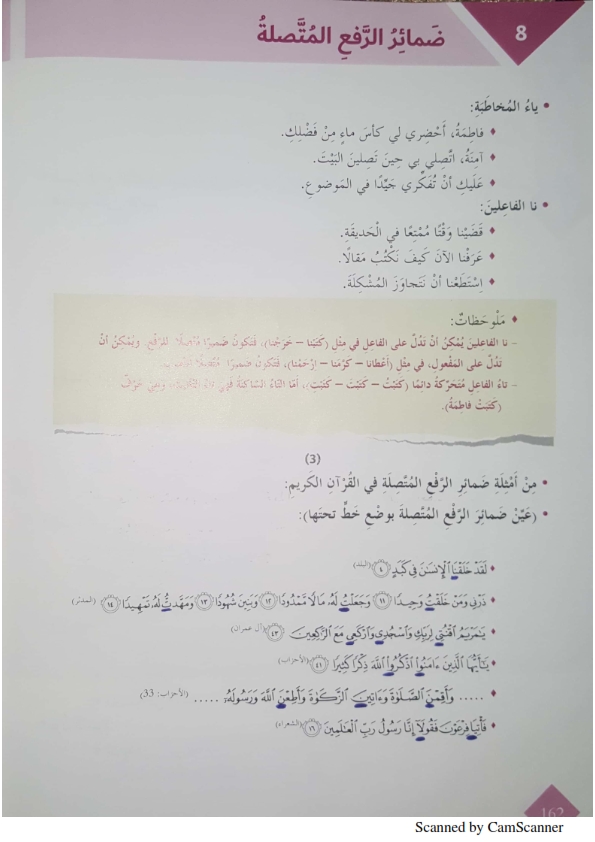 8
ضَمائِرُ الرَّفعِ المُتَّصلةُ
• ياءُ المُخاطَبَةِ:
♦ فاطِمَةُ، أَحْضِري لي كأسَ ماءٍ مِنْ فَضْلِكِ.
♦ آمِنَةُ، اتَّصِلي بي حينَ تَصِلينَ البَيْتَ.
♦ عَلَيكِ أنْ تُفَكِّري جَيِّدًا في المَوضوعِ.
• نا الفاعِلينَ:
♦ قَضَيْنا وَقْتًا مُمْتِعًا في الْحَديقَةِ.
♦ عَرَفْنا الآنَ كَيفَ نَكْتُبُ مَقالًا.
♦ اِسْتَطَعْنا أنْ نَتَجاوَزَ المُشْكِلَةَ.
♦ مَلْوحَظاتٌ:
– نا الفاعلينَ يُمْكِنُ أنْ تَدُلَّ على الفاعلِ في مِثْلِ (كَتَبْنا – خَرَجْنا)، فَتَكونُ ضَميرًا مُتَّصِلًا للرَّفْعِ. ويُمْكِنُ أنْ
تَدُلَّ على المَفْعولِ، في مِثْلِ (أعْطانا – كرَّمَنا – اِرْحَمْنا)، فَتَكونُ ضَميرًا
– تاءُ الفاعِلِ مُتَحَرِّكةٌ دائِمًا (كَتَبْتُ – كَتَبْتَ – كَتَبْتِ)، أمّا التّاءُ السّاكنةُ فهِيَ تاءُ التَّأنيثِ، وهِيَ حَرْفٌ
(كَتَبَتْ فاطِمَةُ).
(3)
• مِنْ أمْثِلَةِ ضَمائِرِ الرَّفْعِ المُتَّصِلَةِ في القُرْآنِ الكَريمِ:
• (عَيِّنْ ضَمائِرَ الرَّفْعِ المُتَّصِلةَ بوضْعِ خَطٍّ تحتَها):
♦ لَقَدْ خَلَقْنَا ٱلْإِنسَٰنَ فِي كَبَدٍ ﴿٤﴾ (البلد)
♦ ذَرْنِي وَمَنْ خَلَقْتُ وَحِيدًا ﴿١١﴾ وَجَعَلْتُ لَهُۥ مَالًا مَّمْدُودًا ﴿١٢﴾ وَبَنِينَ شُهُودًا ﴿١٣﴾ وَمَهَّدتُّ لَهُۥ تَمْهِيدًا ﴿١٤﴾ (المدثر)
♦ يَٰمَرْيَمُ ٱقْنُتِي لِرَبِّكِ وَٱسْجُدِي وَٱرْكَعِي مَعَ ٱلرَّٰكِعِينَ ﴿٤٣﴾ (آل عمران)
♦ يَٰٓأَيُّهَا ٱلَّذِينَ ءَامَنُوا۟ ٱذْكُرُوا۟ ٱللَّهَ ذِكْرًا كَثِيرًا ﴿٤١﴾ (الأحزاب)
♦ ..... وَأَقِمْنَ ٱلصَّلَوٰةَ وَءَاتِينَ ٱلزَّكَوٰةَ وَأَطِعْنَ ٱللَّهَ وَرَسُولَهُۥ ..... (الأحزاب: 33)
♦ فَأْتِيَا فِرْعَوْنَ فَقُولَآ إِنَّا رَسُولُ رَبِّ ٱلْعَٰلَمِينَ ﴿١٦﴾ (الشعراء)
162
Scanned by CamScanner